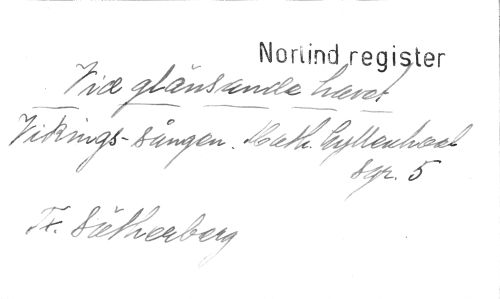 Norlind register
Vid glänsande havet
Vikings-sången. Math. Gyllenhaal
sgr. 5
Tr. Sätherberg